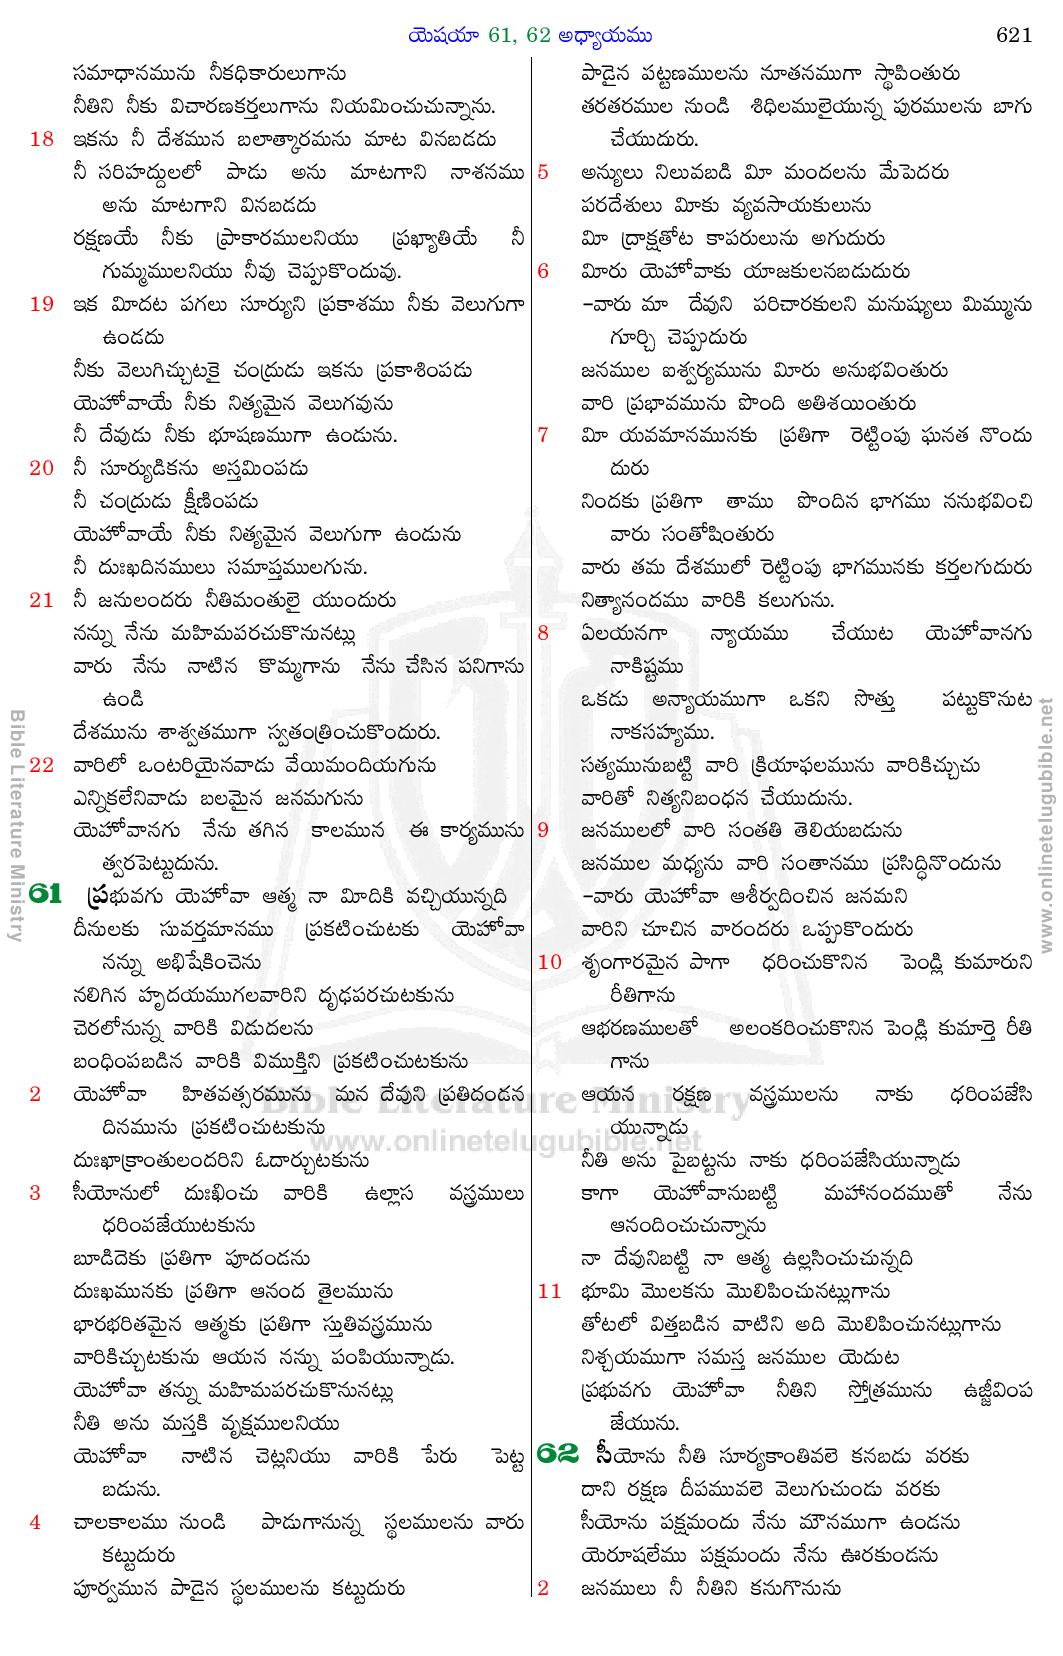 యెషయా 61, 62 అధ్యాయము
621
సమాధానమును నీకధికారులుగాను
నీతిని నీకు విచారణకర్తలుగాను నియమించుచున్నాను.
18 ఇకను నీ దేశమున బలాత్కారమను మాట వినబడదు
నీ సరిహద్దులలో పాడు అను మాటగాని నాశనము
అను మాటగాని వినబడదు
రక్షణయే నీకు ప్రాకారములనియు ప్రఖ్యాతియే నీ
గుమ్మములనియు నీవు చెప్పుకొందువు.
19 ఇక మీదట పగలు సూర్యుని ప్రకాశము నీకు వెలుగుగా
ఉండదు
నీకు వెలుగిచ్చుటకై చంద్రుడు ఇకను ప్రకాశింపడు
యెహోవాయే నీకు నిత్యమైన వెలుగవును
నీ దేవుడు నీకు భూషణముగా ఉండును.
20 నీ సూర్యుడికను అస్తమింపడు
నీ చంద్రుడు క్షీణింపడు
యెహోవాయే నీకు నిత్యమైన వెలుగుగా ఉండును
నీ దుఃఖదినములు సమాప్తములగును.
21 నీ జనులందరు నీతిమంతులై యుందురు
నన్ను నేను మహిమపరచుకొనునట్లు
వారు నేను నాటిన కొమ్మగాను నేను చేసిన పనిగాను
ఉండి
దేశమును శాశ్వతముగా స్వతంత్రించుకొందురు.
22 వారిలో ఒంటరియైనవాడు వేయిమందియగును
ఎన్నికలేనివాడు బలమైన జనమగును
యెహోవానగు నేను తగిన కాలమున ఈ కార్యమును
త్వరపెట్టుదును.
61 ప్రభువగు యెహోవా ఆత్మ నా మీదికి వచ్చియున్నది
దీనులకు సువర్తమానము ప్రకటించుటకు యెహోవా
నన్ను అభిషేకించెను
నలిగిన హృదయముగలవారిని దృఢపరచుటకును
చెరలోనున్న వారికి విడుదలను
బంధింపబడిన వారికి విముక్తిని ప్రకటించుటకును
2 యెహోవా హితవత్సరమును మన దేవుని ప్రతిదండన
దినమును ప్రకటించుటకును
దుఃఖాక్రాంతులందరిని ఓదార్చుటకును
3 సీయోనులో దుఃఖించు వారికి ఉల్లాస వస్త్రములు
ధరింపజేయుటకును
బూడిదెకు ప్రతిగా పూదండను
దుఃఖమునకు ప్రతిగా ఆనంద తైలమును
భారభరితమైన ఆత్మకు ప్రతిగా స్తుతివస్త్రమును
వారికిచ్చుటకును ఆయన నన్ను పంపియున్నాడు.
యెహోవా తన్ను మహిమపరచుకొనునట్లు
నీతి అను మస్తకి వృక్షములనియు
యెహోవా నాటిన చెట్లనియు వారికి పేరు పెట్ట
బడును.
4 చాలకాలము నుండి పాడుగానున్న స్థలములను వారు
కట్టుదురు
పూర్వమున పాడైన స్థలములను కట్టుదురు
పాడైన పట్టణములను నూతనముగా స్థాపింతురు
తరతరముల నుండి శిధిలములైయున్న పురములను బాగు
చేయుదురు.
5 అన్యులు నిలువబడి మీ మందలను మేపెదరు
పరదేశులు మీకు వ్యవసాయకులును
మీ ద్రాక్షతోట కాపరులును అగుదురు
6 మీరు యెహోవాకు యాజకులనబడుదురు
-వారు మా దేవుని పరిచారకులని మనుష్యులు మిమ్మును
గూర్చి చెప్పుదురు
జనముల ఐశ్వర్యమును మీరు అనుభవింతురు
వారి ప్రభావమును పొంది అతిశయింతురు
7 మీ యవమానమునకు ప్రతిగా రెట్టింపు ఘనత నొందు
దురు
నిందకు ప్రతిగా తాము పొందిన భాగము ననుభవించి
వారు సంతోషింతురు
వారు తమ దేశములో రెట్టింపు భాగమునకు కర్తలగుదురు
నిత్యానందము వారికి కలుగును.
8 ఏలయనగా న్యాయము చేయుట యెహోవానగు
నాకిష్టము
ఒకడు అన్యాయముగా ఒకని సొత్తు పట్టుకొనుట
నాకసహ్యము.
సత్యమునుబట్టి వారి క్రియాఫలమును వారికిచ్చుచు
వారితో నిత్యనిబంధన చేయుదును.
9 జనములలో వారి సంతతి తెలియబడును
జనముల మధ్యను వారి సంతానము ప్రసిద్ధినొందును
-వారు యెహోవా ఆశీర్వదించిన జనమని
వారిని చూచిన వారందరు ఒప్పుకొందురు
10 శృంగారమైన పాగా ధరించుకొనిన పెండ్లి కుమారుని
రీతిగాను
ఆభరణములతో అలంకరించుకొనిన పెండ్లి కుమార్తె రీతి
గాను
ఆయన రక్షణ వస్త్రములను నాకు ధరింపజేసి
యున్నాడు
నీతి అను పైబట్టను నాకు ధరింపజేసియున్నాడు
కాగా యెహోవానుబట్టి మహానందముతో నేను
ఆనందించుచున్నాను
నా దేవునిబట్టి నా ఆత్మ ఉల్లసించుచున్నది
11 భూమి మొలకను మొలిపించునట్లుగాను
తోటలో విత్తబడిన వాటిని అది మొలిపించునట్లుగాను
నిశ్చయముగా సమస్త జనముల యెదుట
ప్రభువగు యెహోవా నీతిని స్తోత్రమును ఉజ్జీవింప
జేయును.
62 సీయోను నీతి సూర్యకాంతివలె కనబడు వరకు
దాని రక్షణ దీపమువలె వెలుగుచుండు వరకు
సీయోను పక్షమందు నేను మౌనముగా ఉండను
యెరూషలేము పక్షమందు నేను ఊరకుండను
2 జనములు నీ నీతిని కనుగొనును
Bible Literature Ministry
www.onlinetelugubible.net
Bible Literature Ministry
www.onlinetelugubible.net